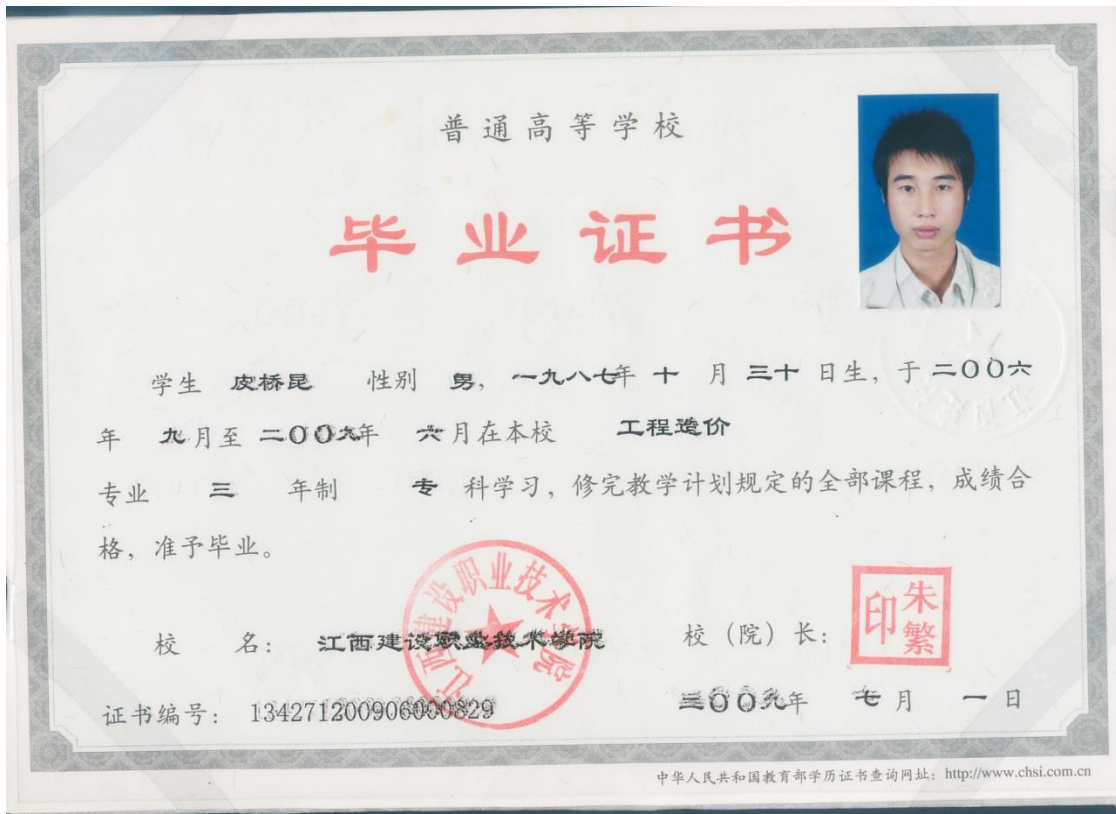 普通高等学校
毕业证书
学生 皮桥昆 性别 男，一九八七年 十 月 三十 日生，于 二〇〇六
年 九月至 二〇〇九年 六月在本校 工程造价
专业 三 年制 专 科学习，修完教学计划规定的全部课程，成绩合
格，准予毕业。
江西建设职业技术学院
校 名：江西建设职业技术学院
校（院）长：
朱繁印
证书编号：134271200906000829
二〇〇九年 七月 一日
中华人民共和国教育部学历证书查询网址：http://www.chsi.com.cn